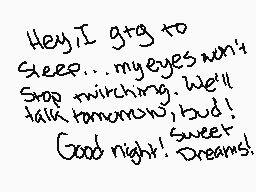 Hey, I gtg to
sleep... my eyes won't
stop twitching. We'll
talk tomorrow, bud!
Good night! Sweet
Dreams!